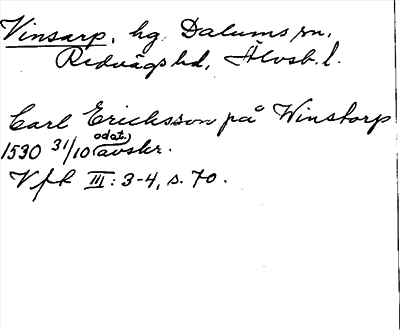 Vinsarp, hg. Dalums sn,
Redvägs hd, Älvsb. l.
Carl Ericksson på Winstorp
1530 31/10 (odat.) avskr.
Vfk III: 3-4, s. 70.